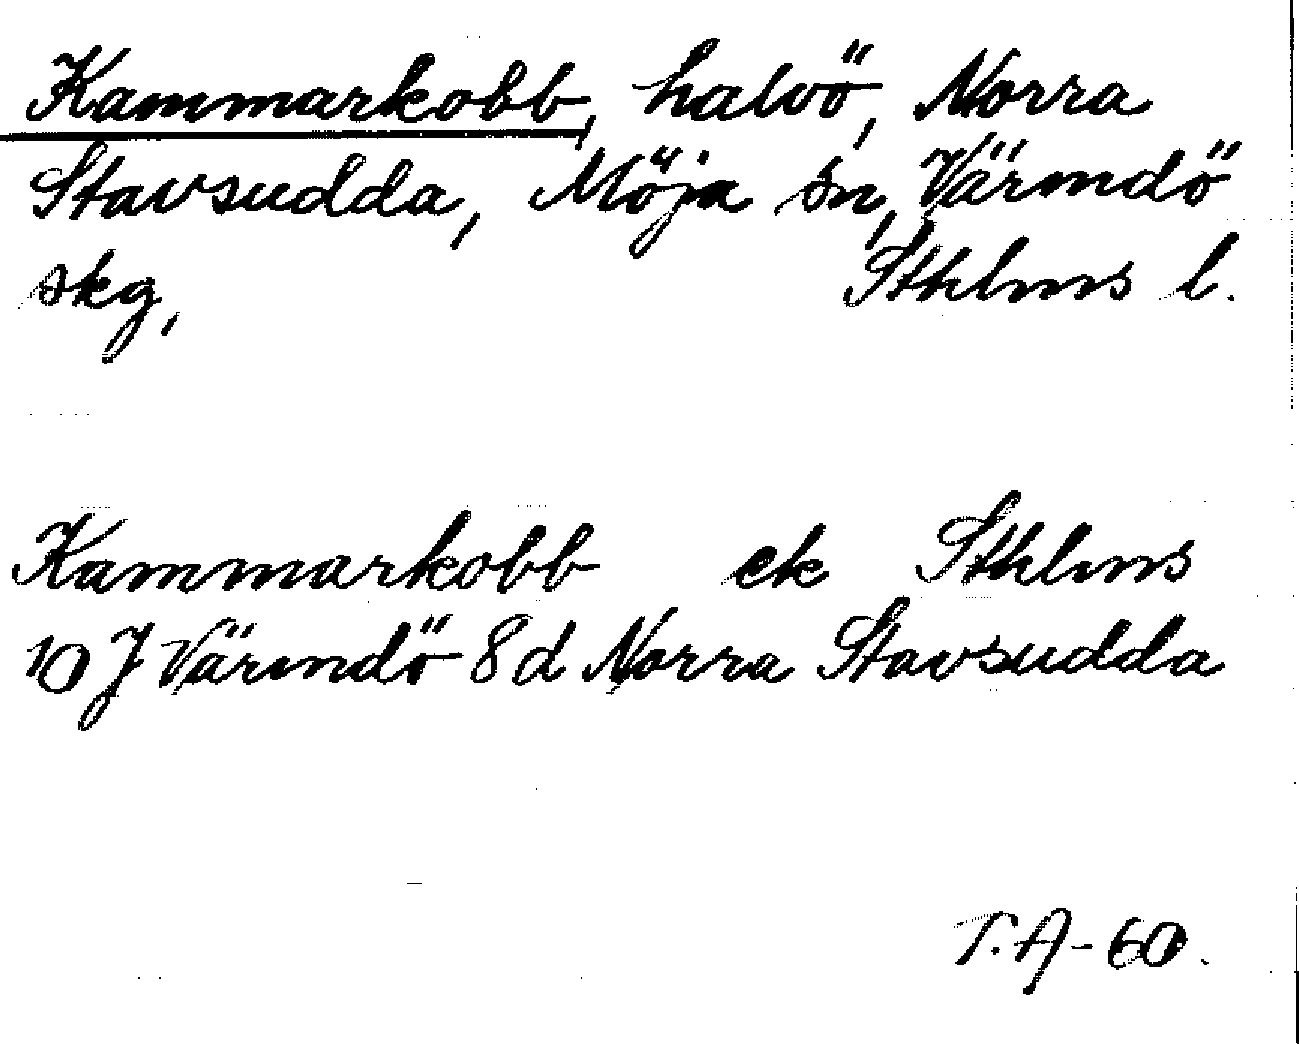 Kammarkobb, halvö, Norra
Stavsudda, Möja sn, Värmdö
skg, Sthlms l.
Kammarkobb ek Sthlms
10 J Värmdö 8 d Norra Stavsudda
T.A-60.